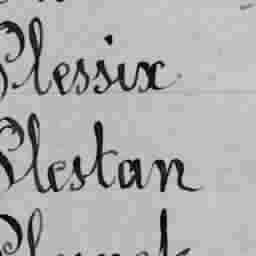 Plessix
Plestan